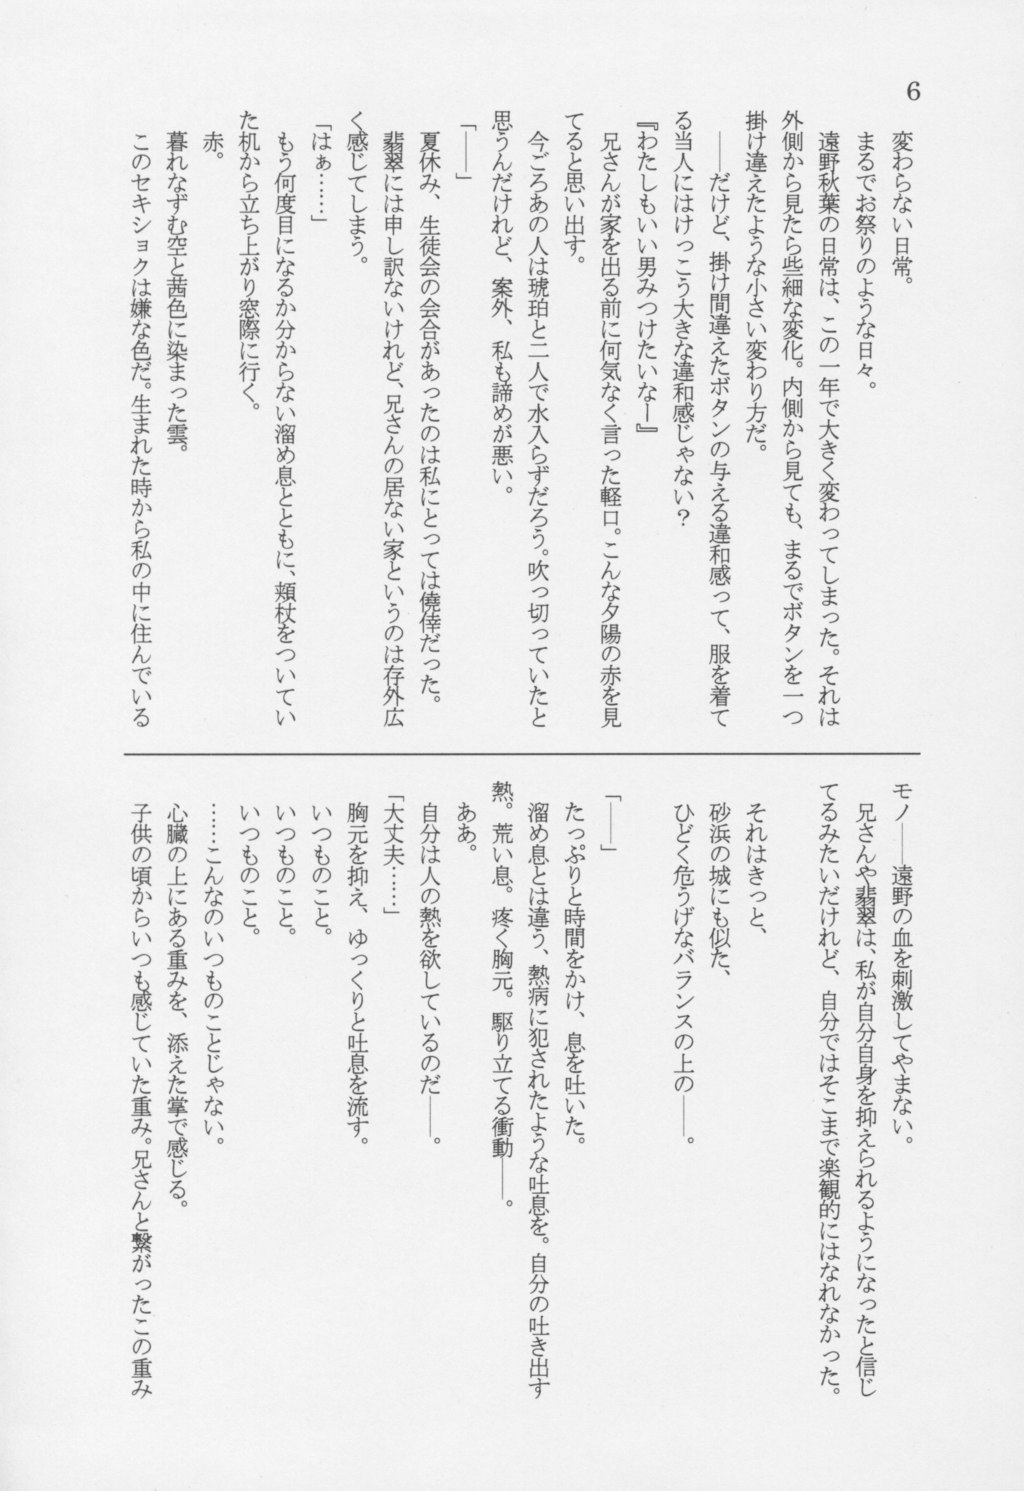 6
変わらない日常。
まるでお祭りのような日々。
遠野秋葉の日常は、この一年で大きく変わってしまった。それは
外側から見たら些細な変化。内側から見ても、まるでボタンを一つ
掛け違えたような小さい変わり方だ。
――だけど、掛け間違えたボタンの与える違和感って、服を着て
る当人にはけっこう大きな違和感じゃない？
『わたしもいい男みつけたいなー』
兄さんが家を出る前に何気なく言った軽口。こんな夕陽の赤を見
てると思い出す。
今ごろあの人は琥珀と二人で水入らずだろう。吹っ切っていたと
思うんだけれど、案外、私も諦めが悪い。
「――」
夏休み、生徒会の会合があったのは私にとっては僥倖だった。
翡翠には申し訳ないけれど、兄さんの居ない家というのは存外広
く感じてしまう。
「はぁ……」
もう何度目になるか分からない溜め息とともに、頬杖をついてい
た机から立ち上がり窓際に行く。
赤。
暮れなずむ空と茜色に染まった雲。
このセキショクは嫌な色だ。生まれた時から私の中に住んでいる
モノ――遠野の血を刺激してやまない。
兄さんや翡翠は、私が自分自身を抑えられるようになったと信じ
てるみたいだけれど、自分ではそこまで楽観的にはなれなかった。
それはきっと、
砂浜の城にも似た、
ひどく危うげなバランスの上の――。
「――」
たっぷりと時間をかけ、息を吐いた。
溜め息とは違う、熱病に犯されたような吐息を。自分の吐き出す
熱。荒い息。疼く胸元。駆り立てる衝動――。
ああ。
自分は人の熱を欲しているのだ――。
「大丈夫……」
胸元を抑え、ゆっくりと吐息を流す。
いつものこと。
いつものこと。
いつものこと。
……こんなのいつものことじゃない。
心臓の上にある重みを、添えた掌で感じる。
子供の頃からいつも感じていた重み。兄さんと繋がったこの重み